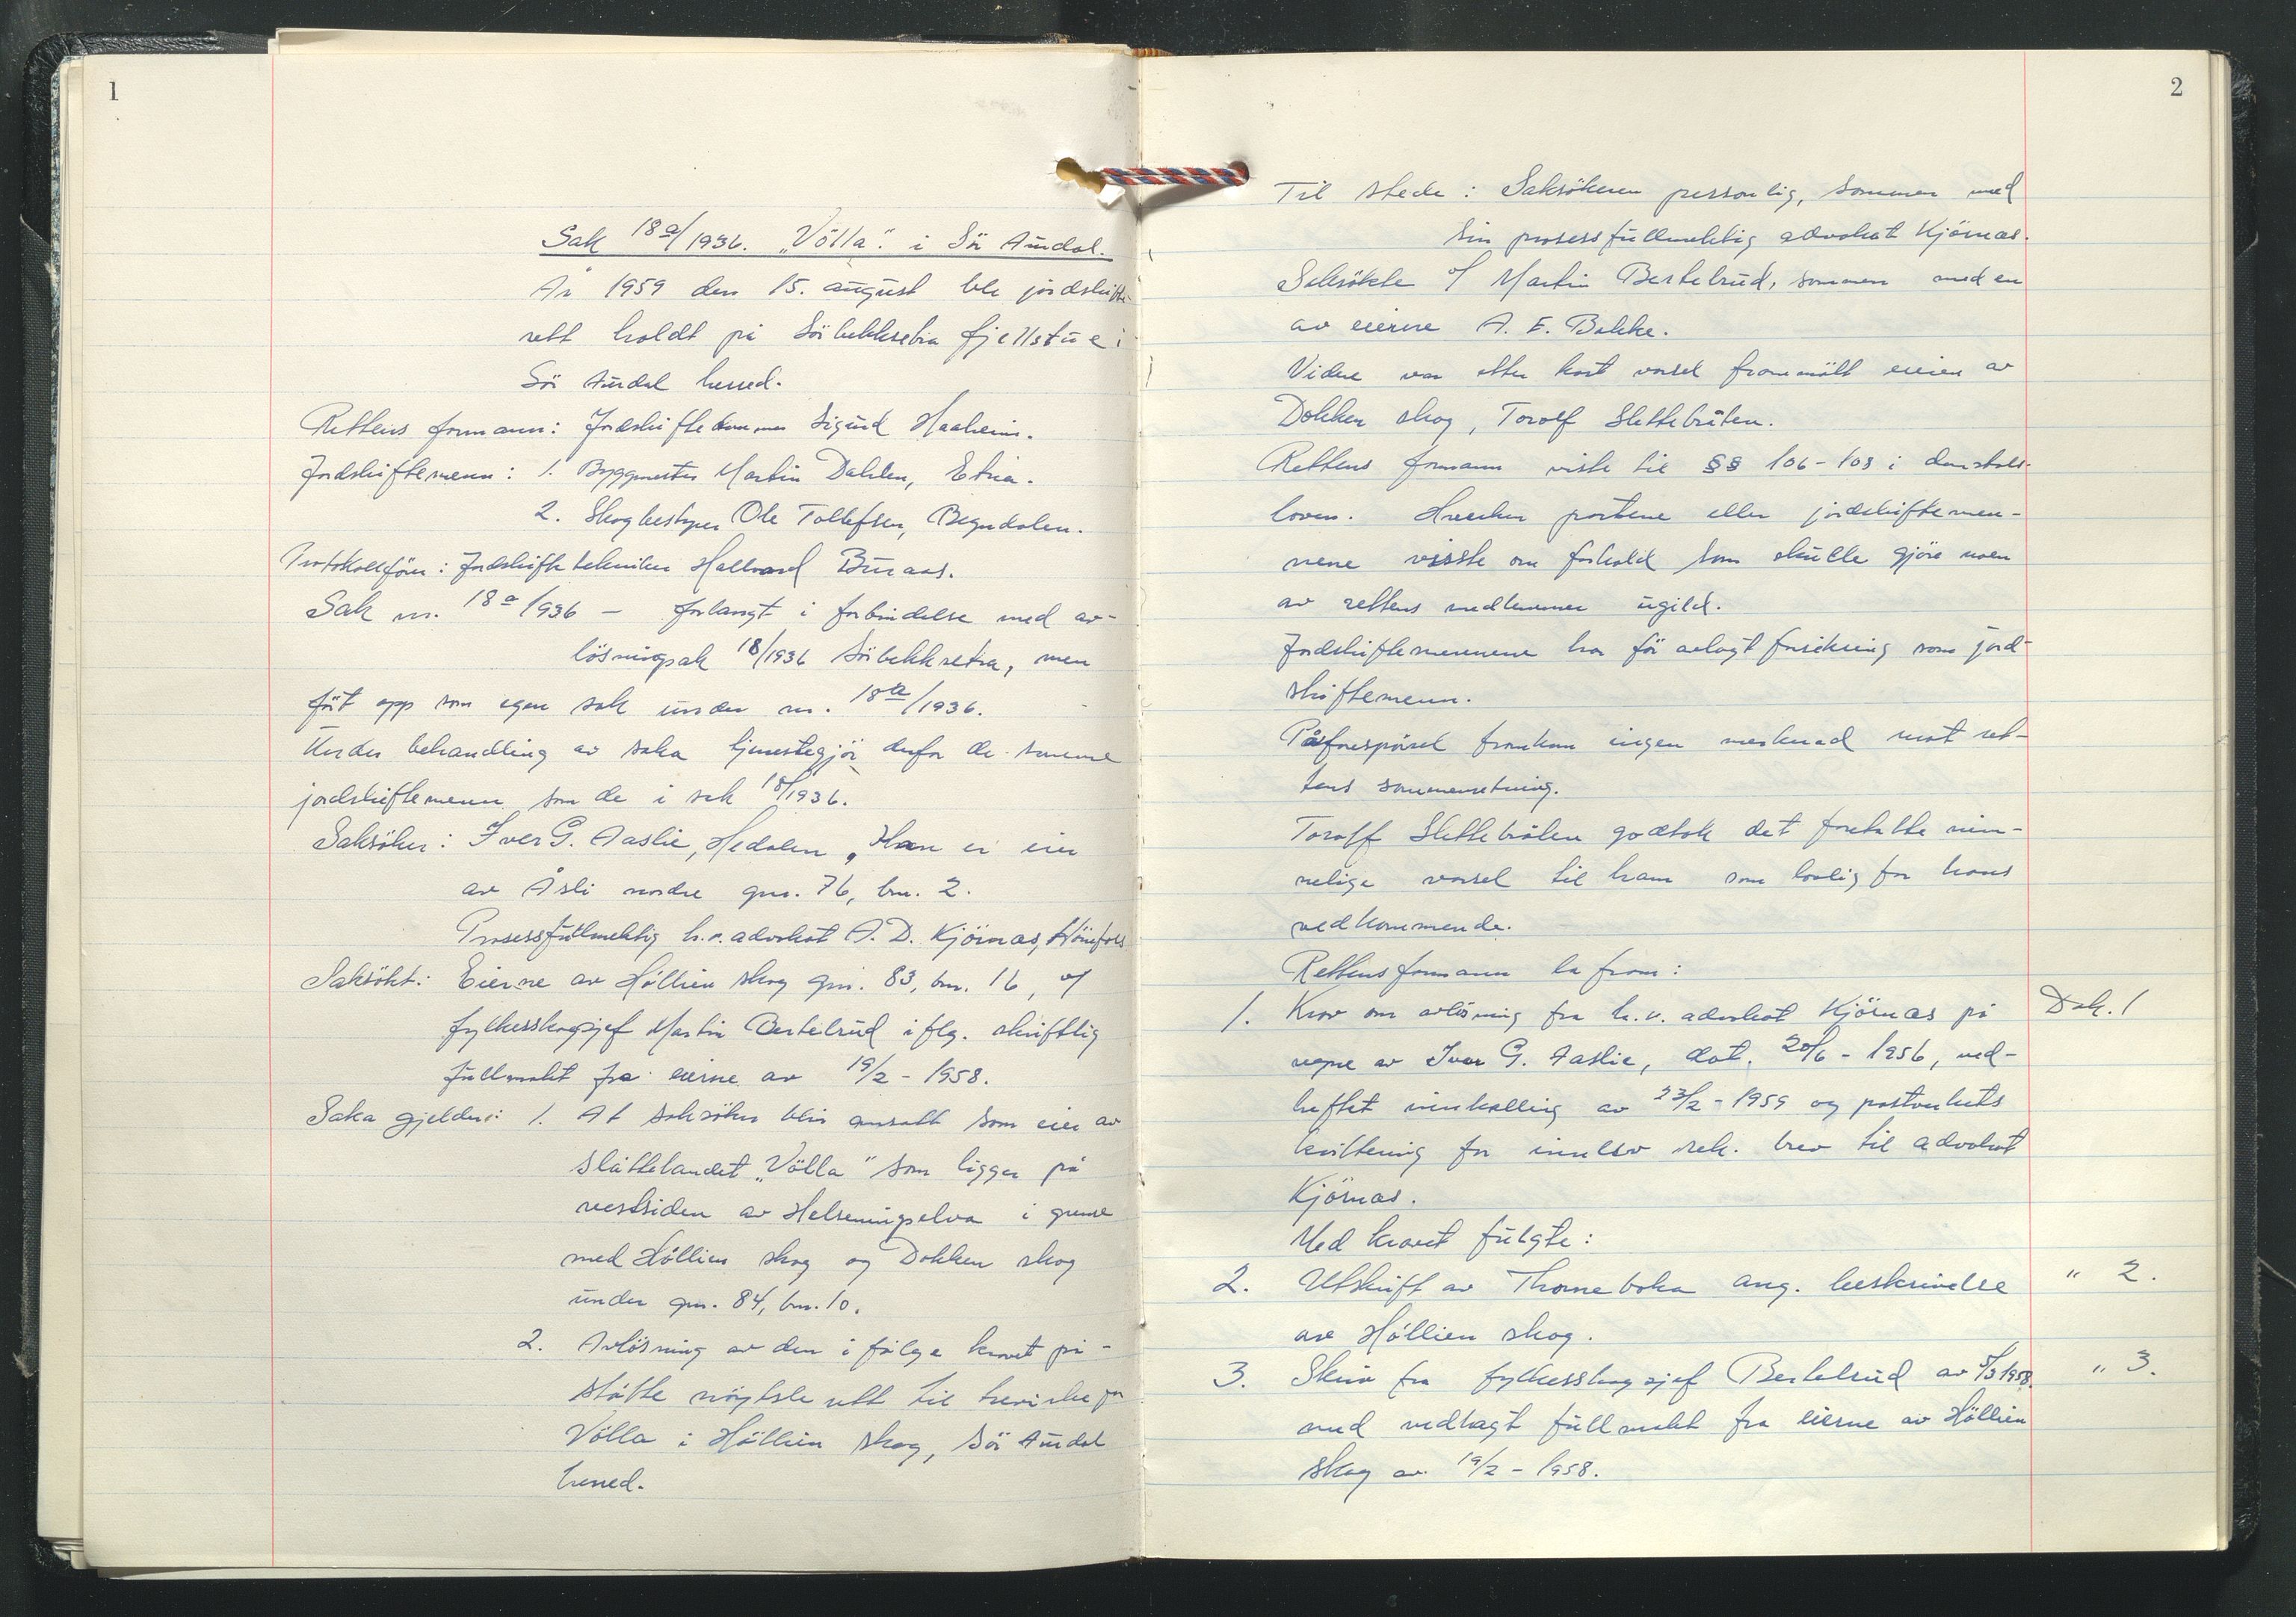 1
Sak 18a/1936. „Völla". i Sör Aurdal.
År 1959 den 15. august ble jordskifte-
rett holdt på Sörbekksetra fjellstue i
Sör Aurdal herred.
Rettens formann: Jordskiftedommer Sigurd Haaheim.
Jordskiftemenn: 1. Byggmester Martin Dahlen, Etna.
2. Skogbestyrer Ole Tollefsen, Begndalen.
Protokollförer: Jordskiftetekniker Hallvard Buraas.
Sak nr. 18a/1936 – forlangt i forbindelse med av-
lösningsak 18/1936 Sörbekksetra, men
fört opp som egen sak under nr. 18a/1936.
Under behandling av saka tjenestegjör derfor de samme
jordskiftemenn som de i sak 18/1936.
Saksöker: Iver G. Aaslie, Hedalen, Han er eier
av Åsli nordre gnr. 76, bnr. 2.
Prosessfullmektig h.r.advokat A. D. Kjörnæs, Hönefoss
Saksökt: Eierne av Höllien skog gnr. 83, bnr. 16, v/
fylkesskogsjef Martin Bertelrud iflg. skriftlig
fullmakt fra eierne av 19/2 - 1958.
Saka gjelder: 1. At saksöker blir ansatt som eier av
slåttelandet „Völla" som ligger på
vestsiden av Helseningselva i grense
med Höllien skog og Dokken skog
under gnr. 84, bnr. 10.
2. Avlösning av den i fölge kravet på-
ståtte nöytsle rett til trevirke for
Völla i Höllien skog, Sör Aurdal
herred.
2
Til stede: Saksökeren personlig, sammen med
sin prosessfullmektig advokat Kjörnæs.
Saksökte v/ Martin Bertelrud, sammen med en
av eierne A. E. Bakke.
Videre var etter kort varsel frammött eieren av
Dokken skog, Torolf Slettebråten.
Rettens formann viste til §§ 106-108 i domstols-
loven. Hverken partene eller jordskiftemen-
nene visste om forhold som skulle gjöre noen
av rettens medlemmer ugild.
Jordskiftemennene har för avlagt forsikring som jord-
skiftemenn.
På forespörsel framkom ingen merknad mot ret-
tens sammensetning.
Torolf Slettebråten godtok det foretatte rim-
melige varsel til ham som lovlig for hans
vedkommende.
Rettensformann la fram:
1. Krav om avlösning fra h.r. advokat Kjörnæs på Dok. 1
vegne av Iver G. Aaslie, dat. 20/6 - 1956, ved-
heftet innkalling av 23/2 - 1959 og postverkets
kvittering for innlev. rek. brev til advokat
Kjörnæs.
Med kravet fulgte:
2. Utskrift av Thorneboka ang. beskrivelse " 2.
av Höllien skog.
3. Skriv fra fylkesskogsjef Bertelrud av 5/3 1958 " 3.
med vedlagt fullmakt fra eierne av Höllien
skog av 19/2 - 1958.